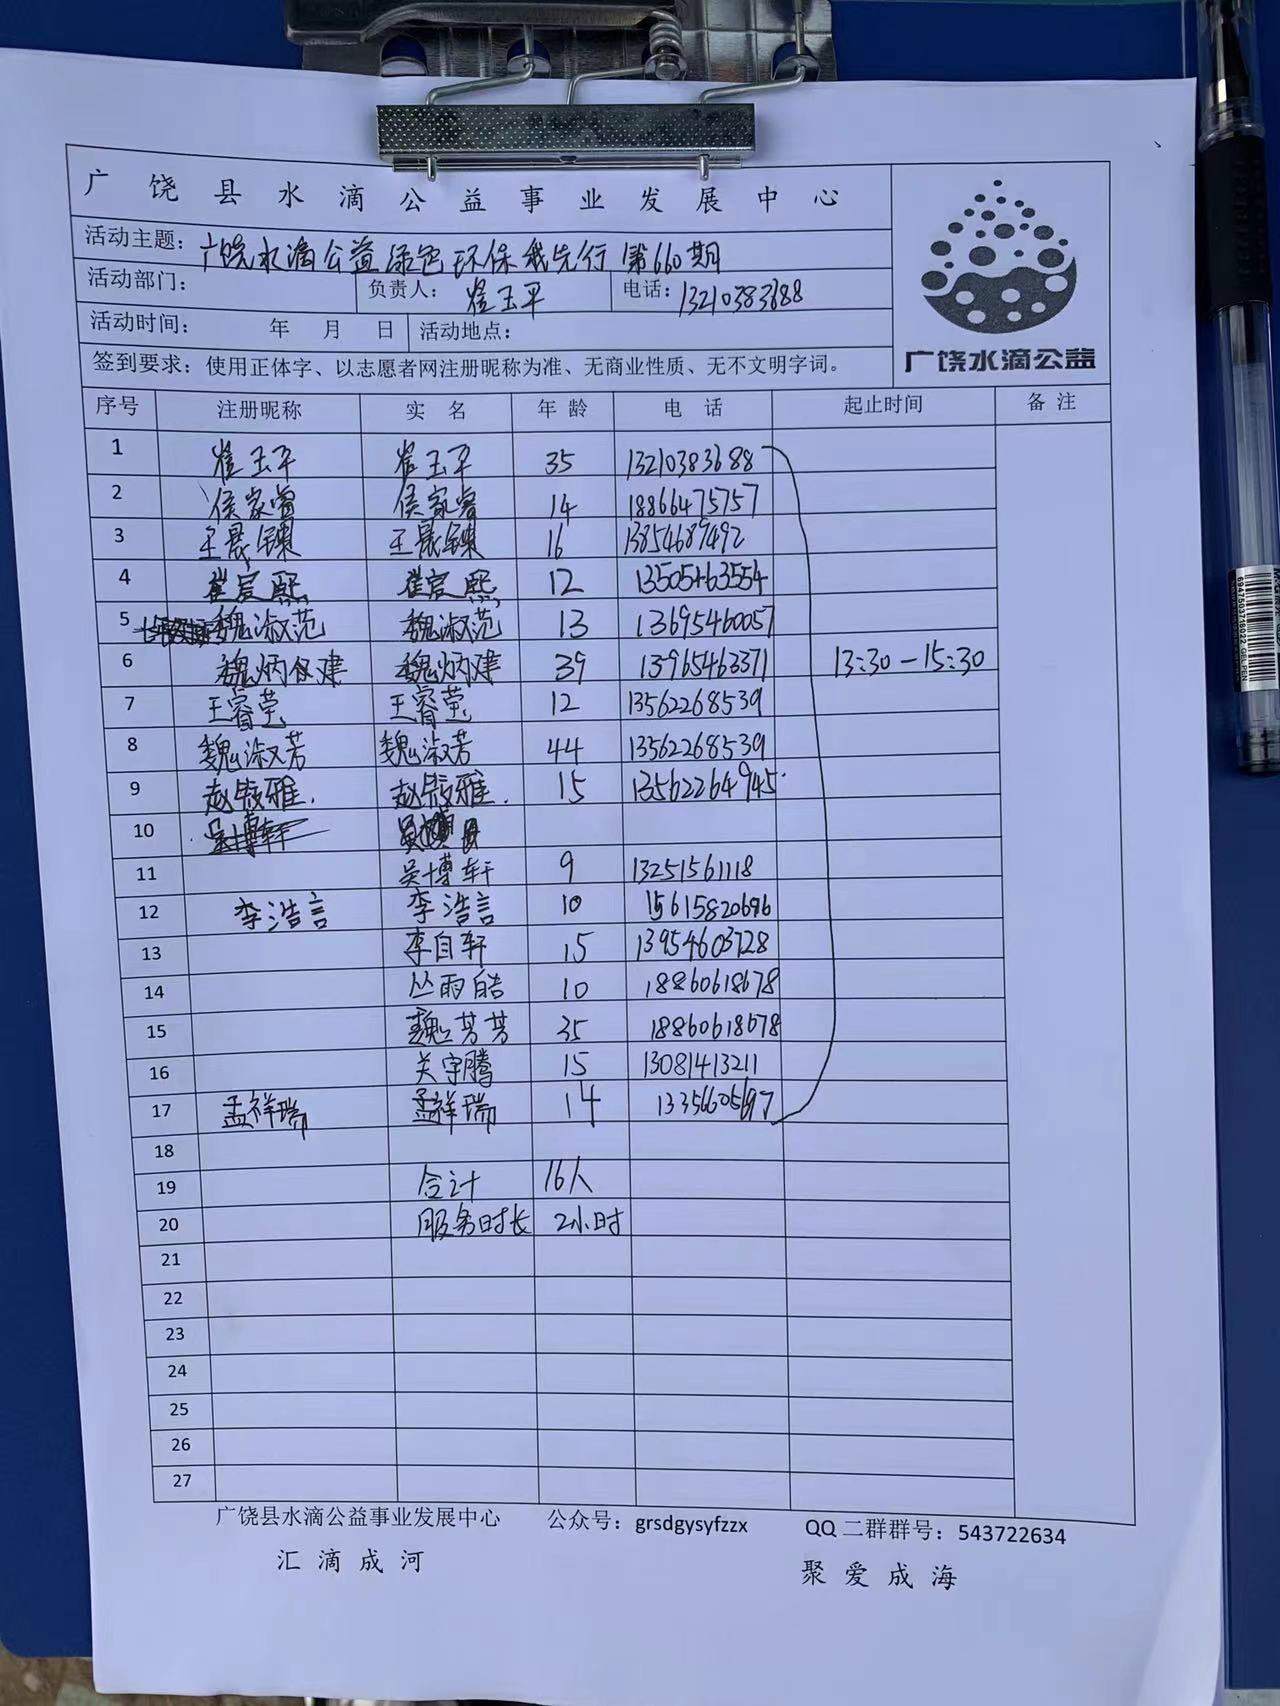 广饶县水滴公益事业发展中心
活动主题：广饶水滴公益绿色环保我先行 第660期
活动部门： 负责人：崔玉平 电话：13210383688
活动时间： 年 月 日 活动地点：
签到要求：使用正体字、以志愿者网注册昵称为准、无商业性质、无不文明字词。
广饶水滴公益
序号 注册昵称 实 名 年 龄 电 话 起止时间 备 注
1 崔玉平 崔玉平 35 13210383688
2 侯家睿 侯家睿 14 18866475757
3 王晟 王晟 16 13854689492
4 崔宸熙 崔宸熙 12 13505463554
5 魏淑范 魏淑范 13 13695460057
6 魏炳建 魏炳建 39 13965463371 13:30-15:30
7 王睿莹 王睿莹 12 13562268539
8 魏淑芳 魏淑芳 44 13562268539
9 赵雅 赵雅 15 13562264945
10 吴博轩
11 吴博轩 9 13251561118
12 李浩言 李浩言 10 15615820696
13 李自轩 15 13954603728
14 丛雨皓 10 18860618678
15 魏芳芳 35 18860618678
16 关宇腾 15 13081413211
17 孟祥瑞 孟祥瑞 14
18
19 合计 16人
20 服务时长 2小时
21
22
23
24
25
26
27
广饶县水滴公益事业发展中心 公众号：grsdgysyfzzx QQ二群群号：543722634
汇滴成河 聚爱成海
6947503776022 GEL PEN